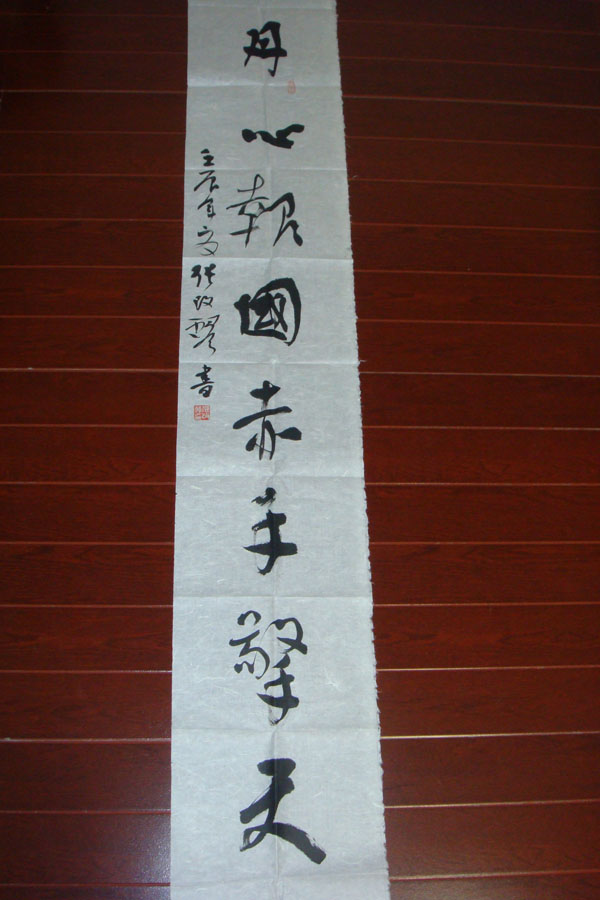 丹心報國赤手擎天
壬辰年夏張政賢書